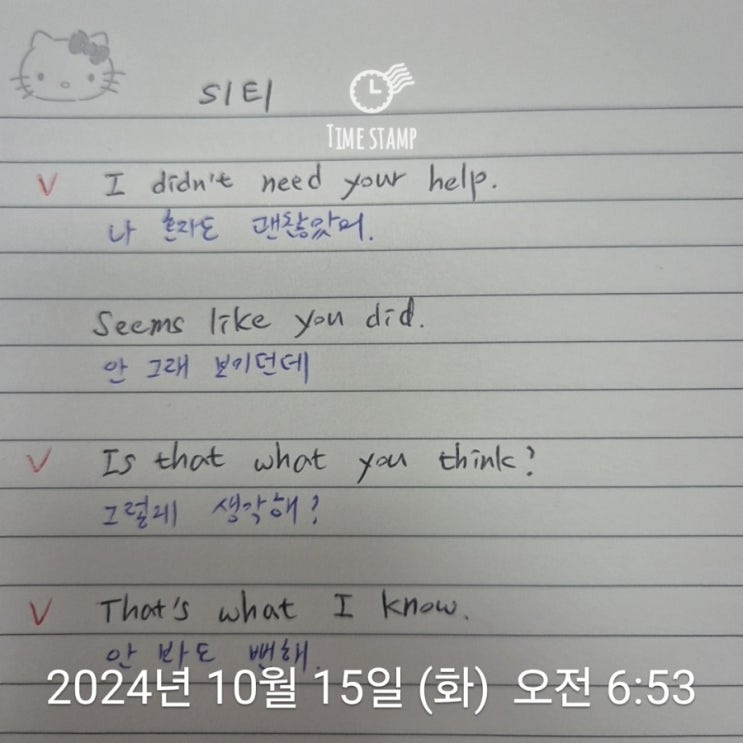 시티
TIME STAMP
V I didn't need your help.
나 혼자도 괜찮았어.
Seems like you did.
안 그래 보이던데
V Is that what you think?
그렇게 생각해?
V That's what I know.
안 봐도 뻔해.
2024년 10월 15일 (화) 오전 6:53